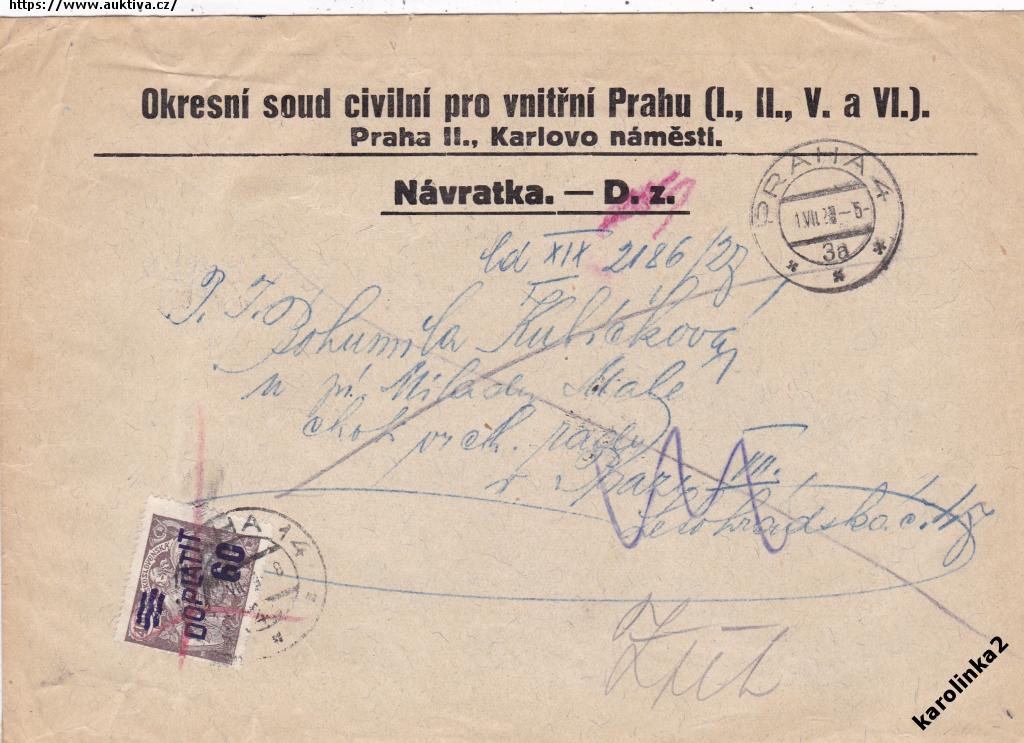 https://www.auktiva.cz/
Okresní soud civilní pro vnitřní Prahu (I., II., V. a VI.).
Praha II., Karlovo náměstí.
Návratka. — D. z.
PRAHA 4
1.VII.2 -5-
3a
XIX 2186/27
P. T.
Bohumila Kubíčková
u pí. Milady Malé
choť vrch. rady
v Praze VII.
Letohradská č.
DOPLATIT
60
HA 14
Zpět
karolinka2